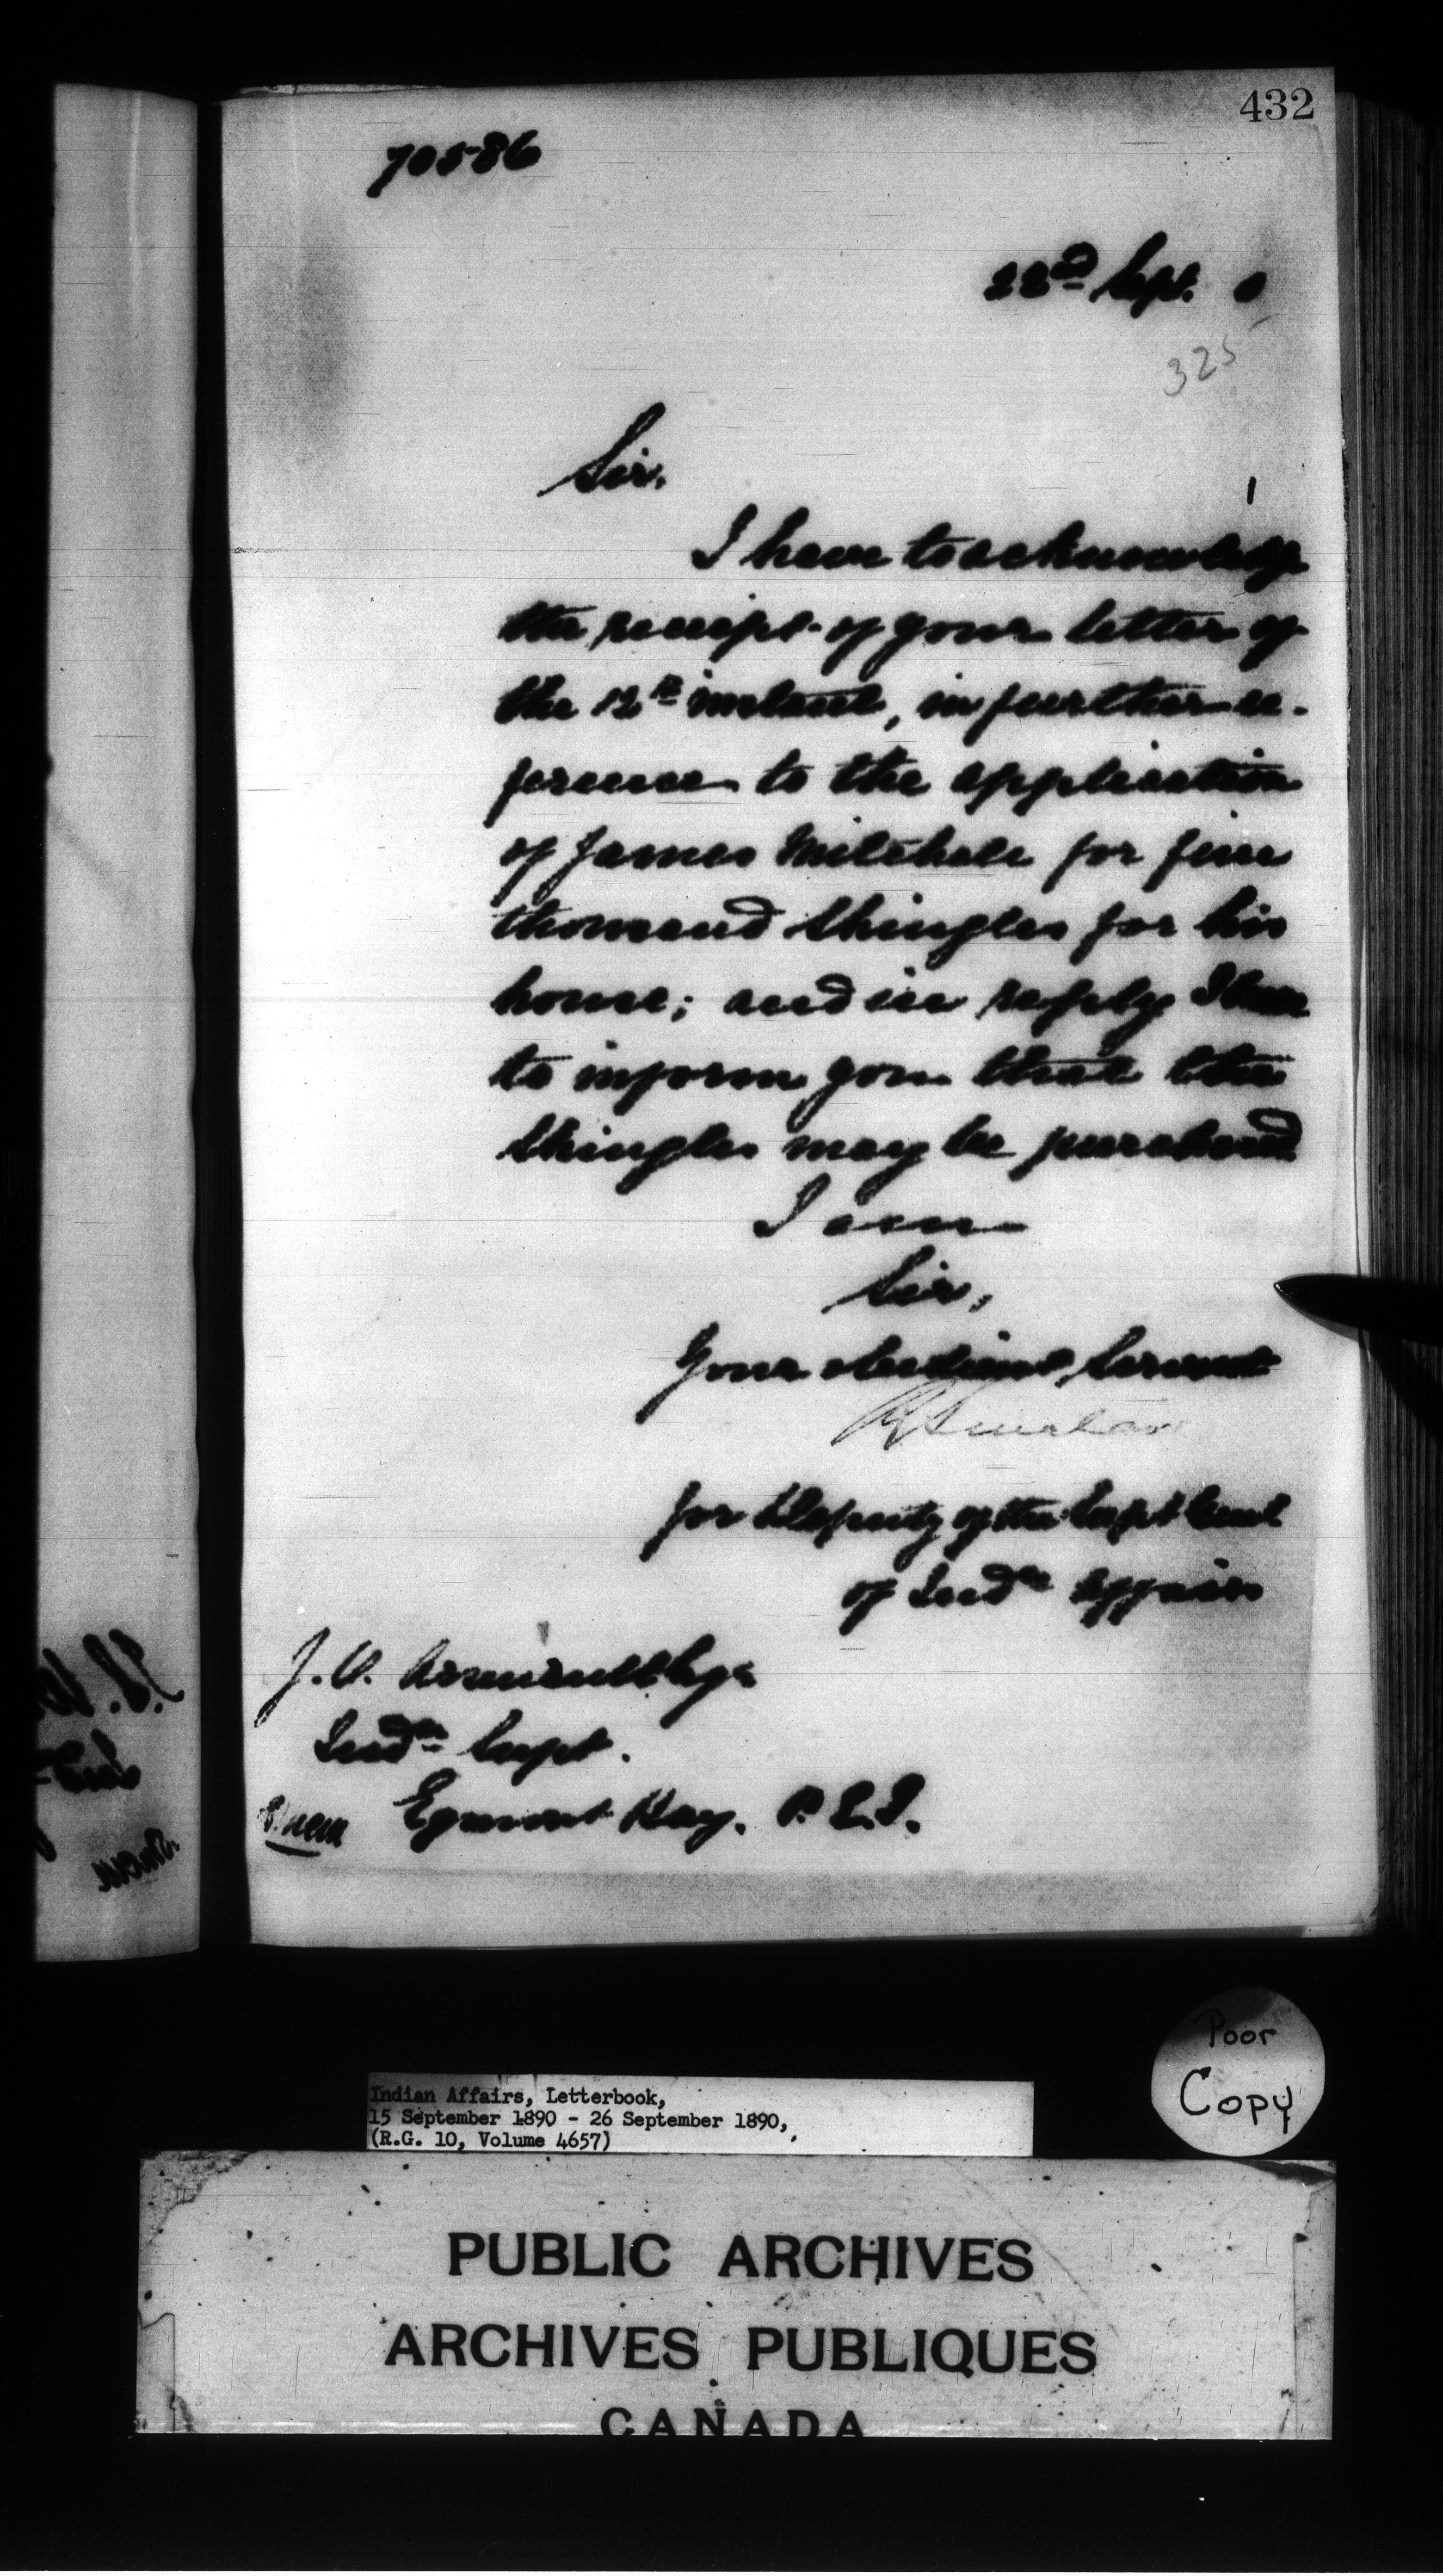 432
70586
22nd Sept. 0
325
Sir,
I have to acknowledge
the receipt of your letter of
the 12th instant, in further re-
ference to the application
of James Mitchell for five
thousand shingles for his
house; and in reply I have
to inform you that the
shingles may be purchased
I am
Sir,
Your obedient Servant
R Sinclair
for Deputy of the Supt Genl
of Indn Affairs
J. O. Arsenault Esqr
Indn Supt.
Egmont Bay. P.E.I.
Poor
Copy
Indian Affairs, Letterbook,
15 September 1890 - 26 September 1890,
(R.G. 10, Volume 4657)
PUBLIC ARCHIVES
ARCHIVES PUBLIQUES
CANADA